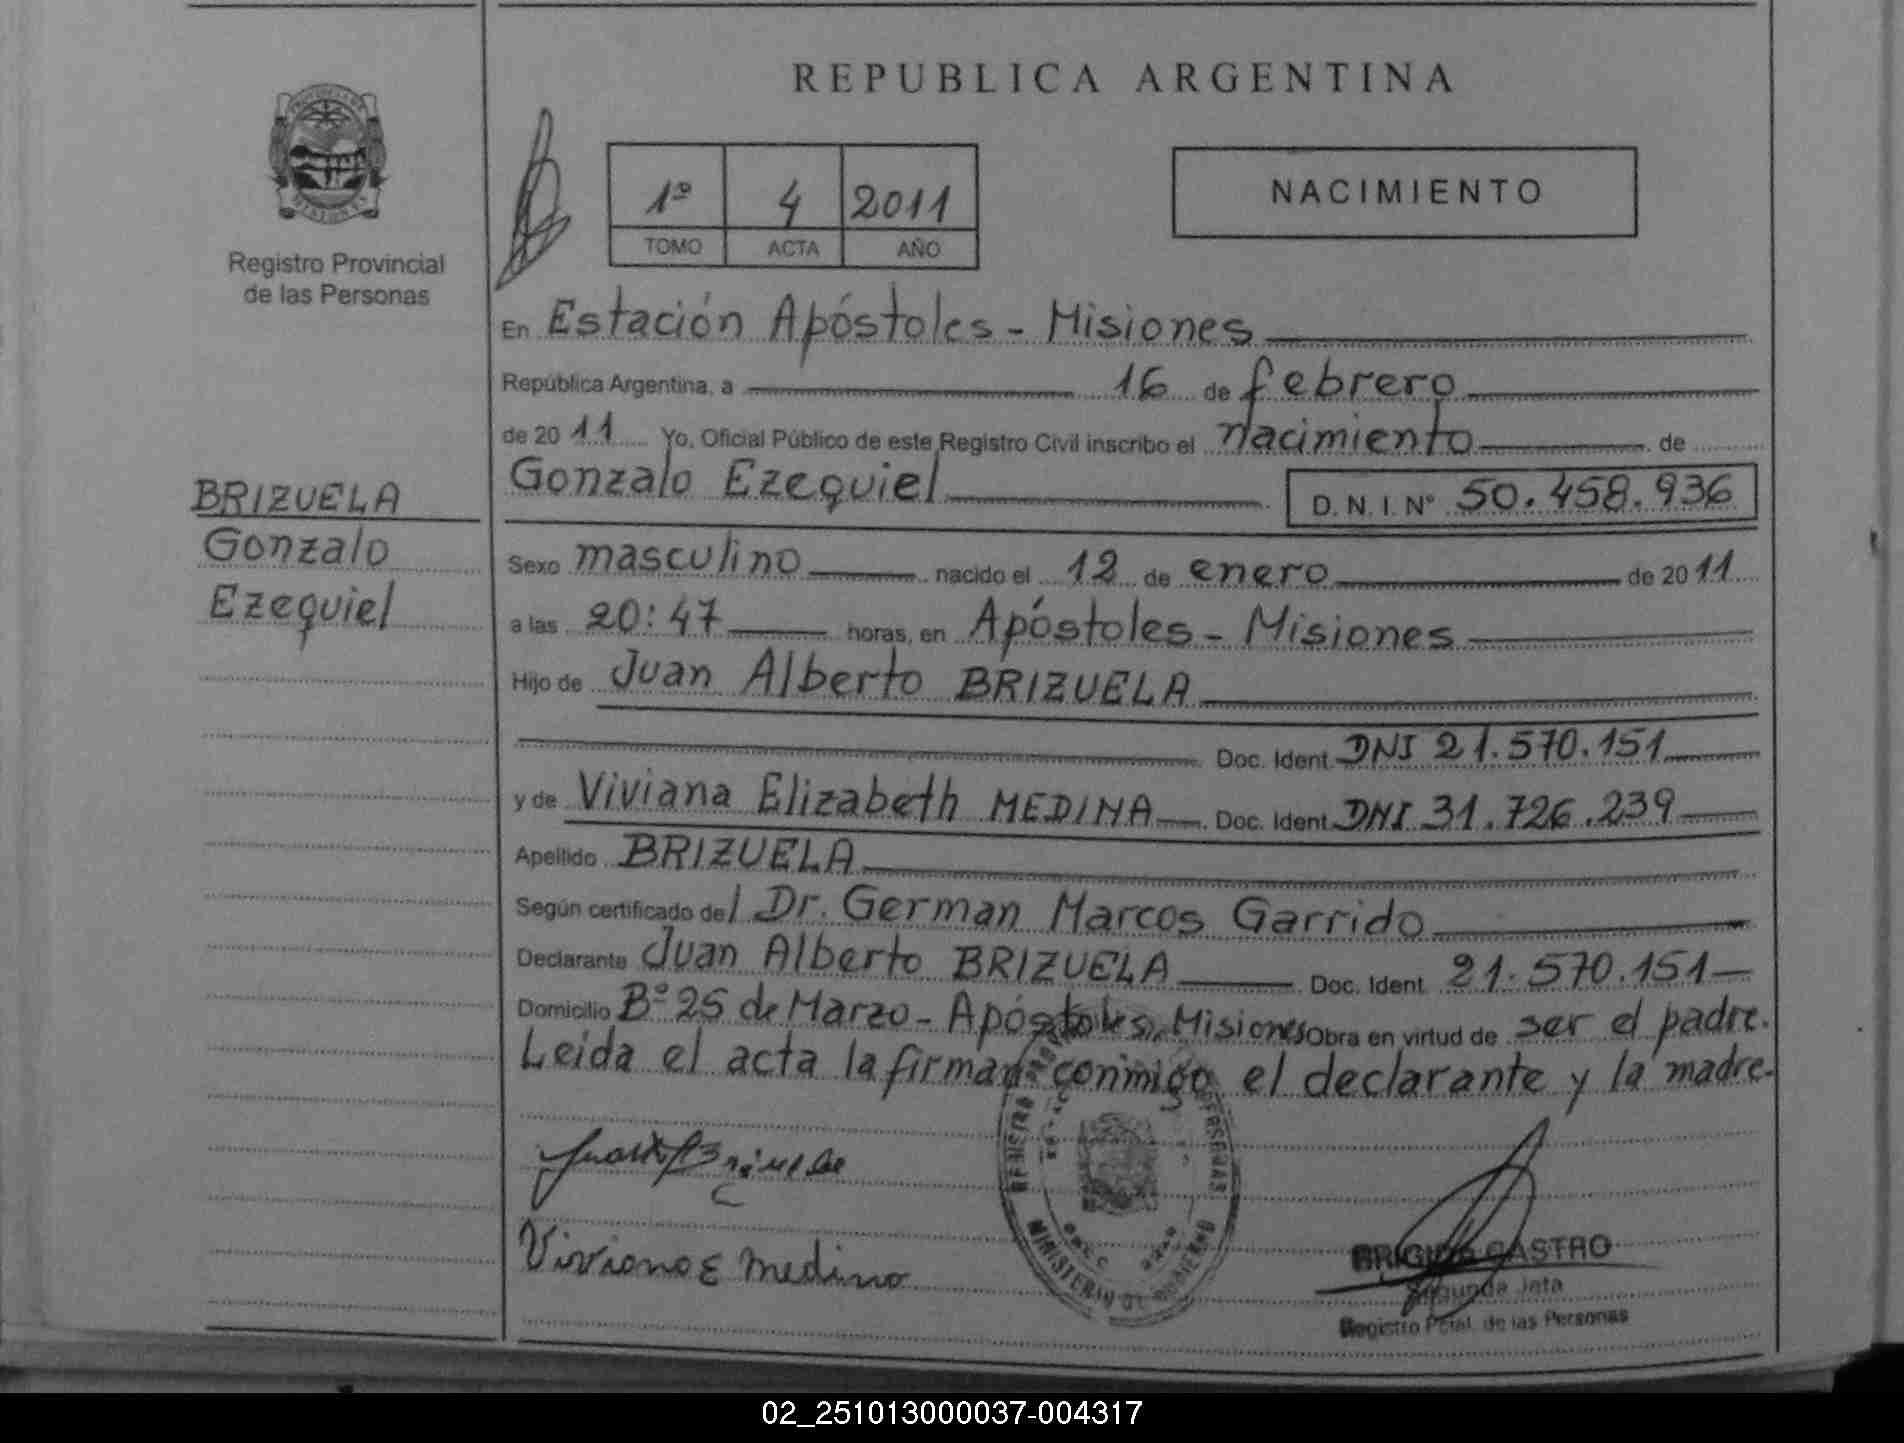 REPUBLICA ARGENTINA
PROVINCIA DE
MISIONES
Registro Provincial
de las Personas
1º 4 2011
TOMO ACTA AÑO
NACIMIENTO
En Estación Apóstoles - Misiones
República Argentina, a 16 de febrero
de 2011 Yo, Oficial Público de este Registro Civil inscribo el nacimiento de
BRIZUELA
Gonzalo
Ezequiel
Gonzalo Ezequiel D.N.I. Nº 50.458.936
Sexo masculino nacido el 12 de enero de 2011
a las 20:47 horas, en Apóstoles - Misiones
Hijo de Juan Alberto BRIZUELA
Doc. Ident. DNI 21.570.151
y de Viviana Elizabeth MEDINA Doc. Ident. DNI 31.726.239
Apellido BRIZUELA
Según certificado del Dr. German Marcos Garrido
Declarante Juan Alberto BRIZUELA Doc. Ident. 21.570.151
Domicilio Bº 25 de Marzo - Apóstoles, Misiones Obra en virtud de ser el padre.
Leida el acta la firman conmigo el declarante y la madre.
Viviana E Medina
MINISTERIO DE GOBIERNO
BRIGIDA CASTRO
Segunda Jefa
Registro Pcial. de las Personas
02_251013000037-004317